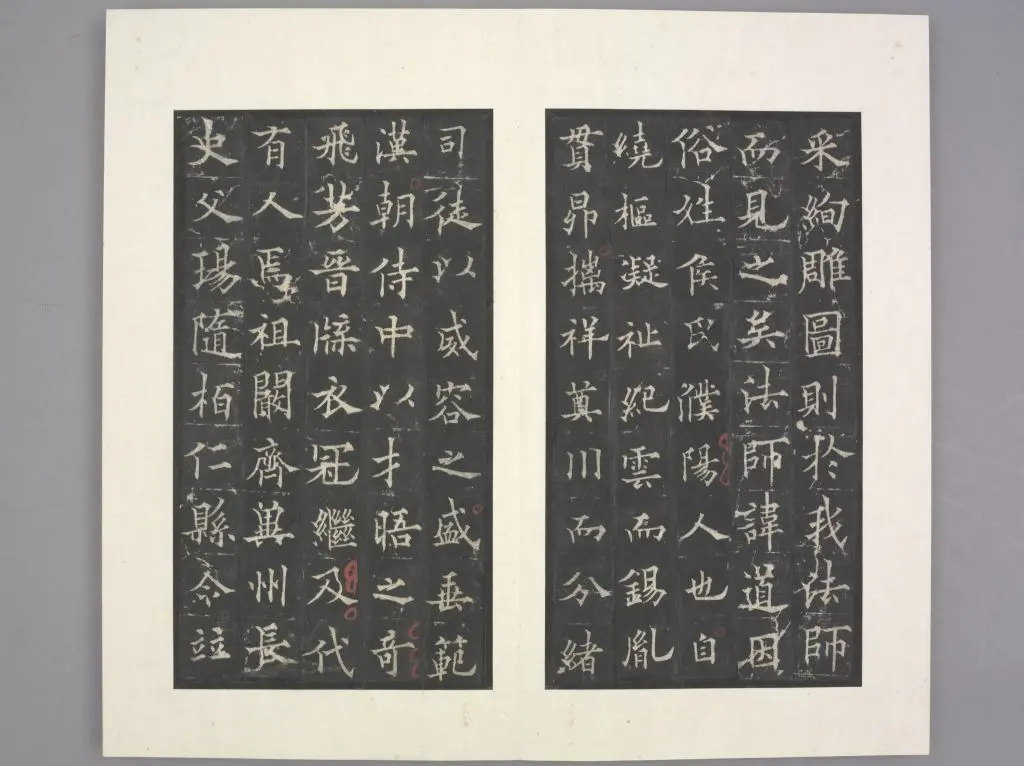 采絢雕圖則於我法師
而見之矣法師諱道因
俗姓侯氏濮陽人也自
繞樞凝祉紀雲而錫胤
貫昴摛祥奠川而分緒
司徒以威容之盛垂範
漢朝侍中以才晤之奇
飛芳晉牒衣冠繼及代
有人焉祖闞齊冀州長
史父瑒隨栢仁縣令竝